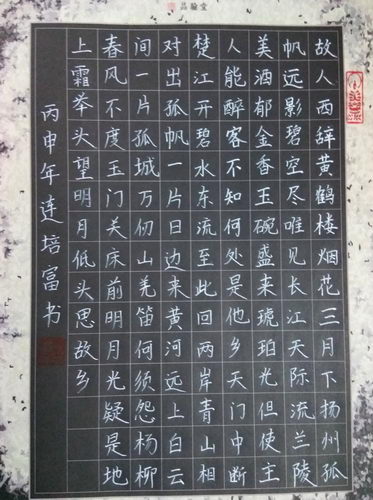 品翰堂
故人西辞黄鹤楼烟花三月下扬州孤
帆远影碧空尽唯见长江天际流兰陵
美酒郁金香玉碗盛来琥珀光但使主
人能醉客不知何处是他乡天门中断
楚江开碧水东流至此回两岸青山相
对出孤帆一片日边来黄河远上白云
间一片孤城万仞山羌笛何须怨杨柳
春风不度玉门关床前明月光疑是地
上霜举头望明月低头思故乡
丙申年连培富书